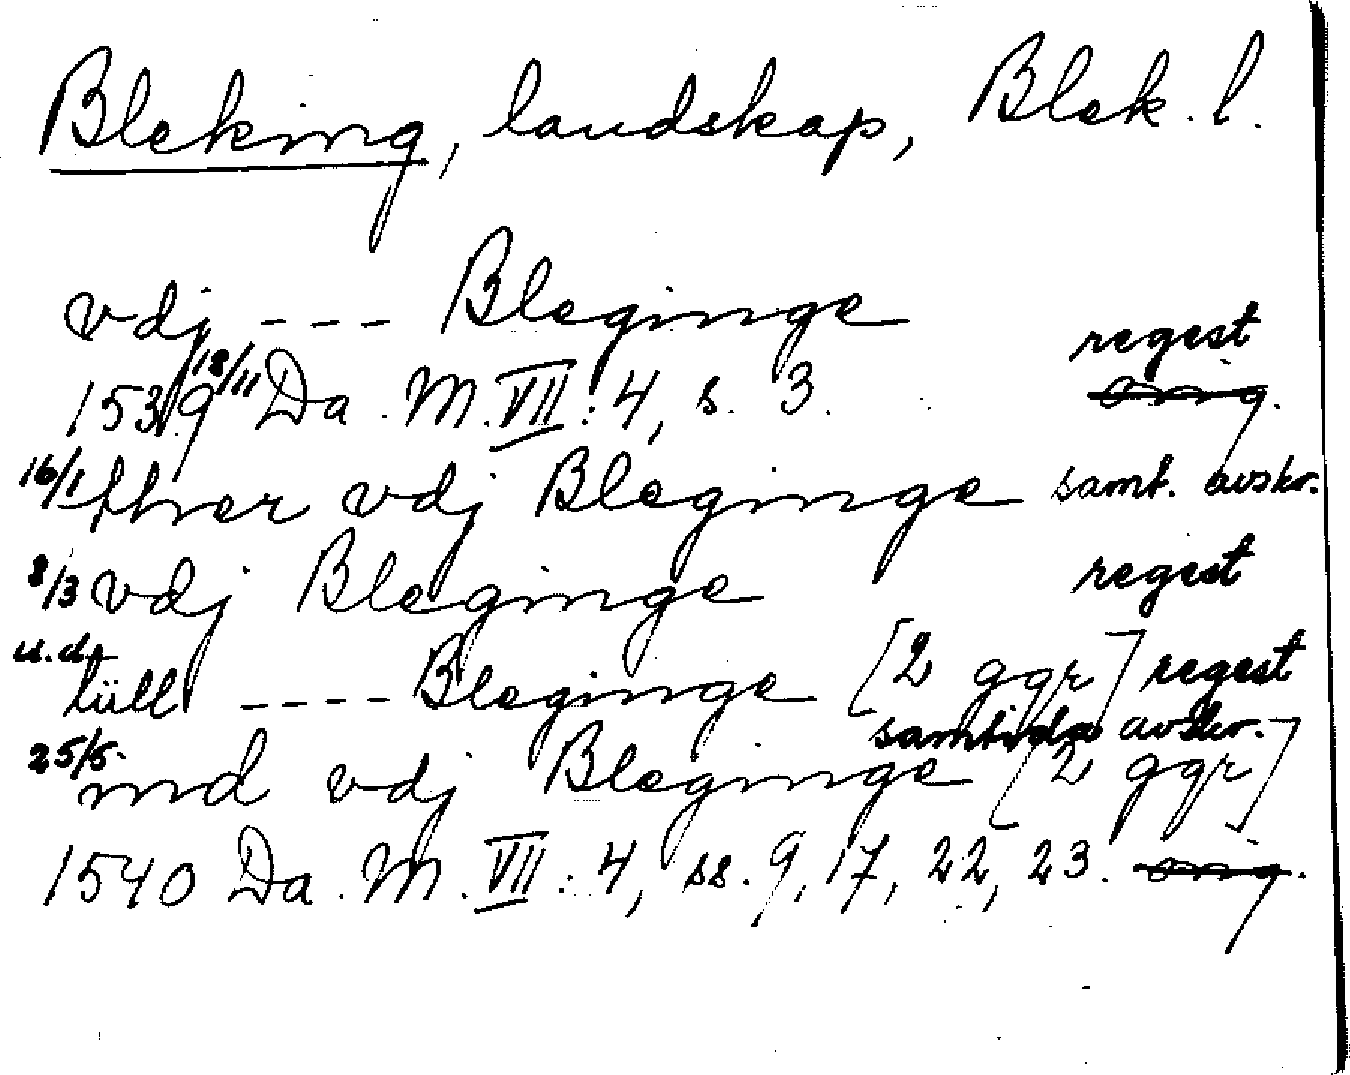 Bleking, landskap, Blek. l.
vdj --- Bleginge regest
1539 18/11 Da. M. VII: 4, s. 3. orig.
16/1 fhrer vdj Bleginge samt. avskr.
8/3 vdj Bleginge regest
u.d. tüll ---- Bleginge [2 ggr] regest
samtida avskr.
25/5. ind vdj Bleginge [2 ggr]
1540 Da. M. VII: 4, ss. 9, 17, 22, 23. orig.